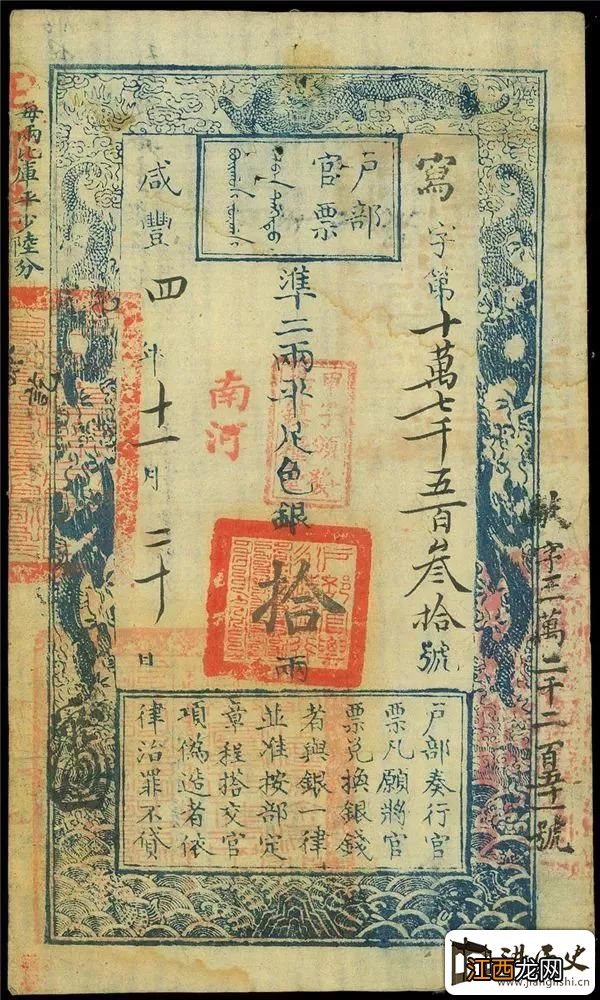 字三萬二千二百五一號
寫字第十萬七千五百叁拾號
户部
官票
準二兩平足色銀拾兩
南河
咸豐四年十一月二十日
户部奏行官
票凡願將官
票兑換銀錢
者與銀一律
並准按部定
章程搭交官
項偽造者依
律治罪不貸
每兩比庫平少陸分
江西龙网
www.jianglishi.cn